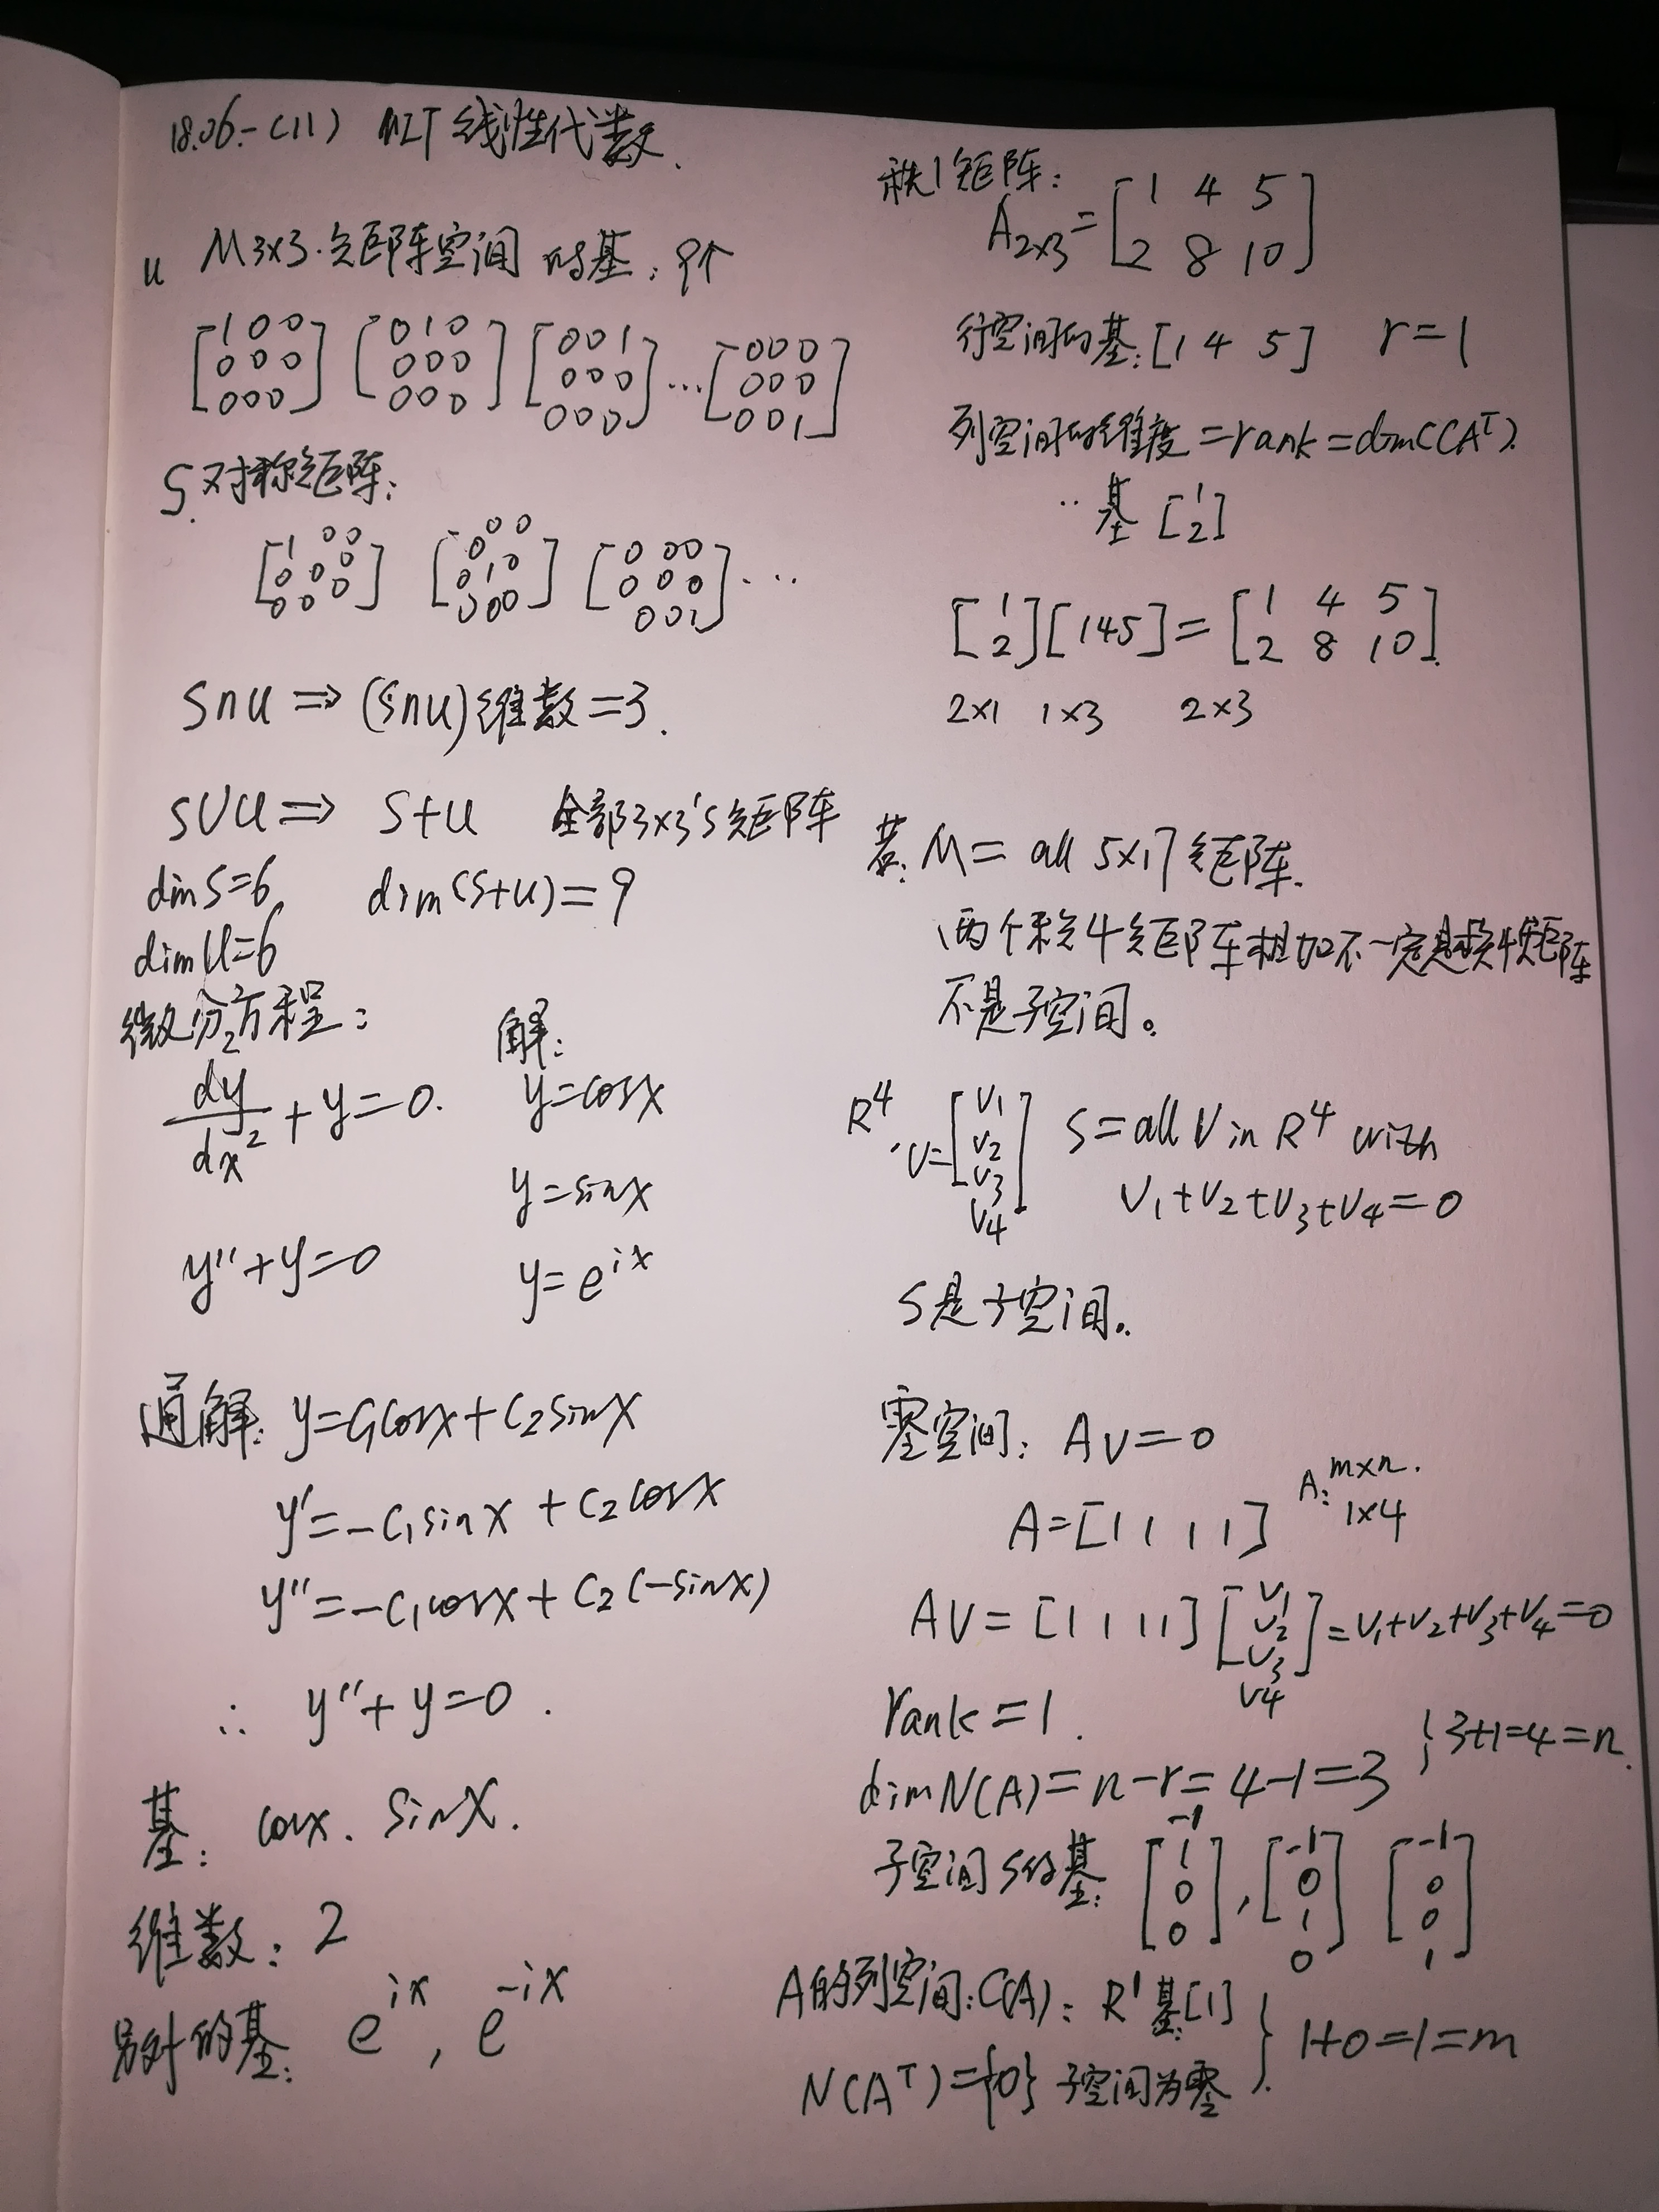 18.06-(11) MIT 线性代数.
u M3x3.矩阵空间的基: 9个
[1 0 0 [0 1 0 [0 0 1 [0 0 0
0 0 0 0 0 0 0 0 0 ... 0 0 0
0 0 0] 0 0 0] 0 0 0] 0 0 1]
S.对称矩阵:
[1 0 0 [0 0 0 [0 0 0
0 0 0 0 1 0 0 0 0 ...
0 0 0] 0 0 0] 0 0 1]
S∩U ⇒ (S∩U)维数=3.
S∪U ⇒ S+U 全部3x3's矩阵
dim S=6 dim(S+U)=9
dim U=6
微分方程: 解:
d²y/dx² + y=0. y=cosx
y=sinx
y''+y=0 y=e^{ix}
通解: y=C1cosx+C2sinx
y'=-C1sinx+C2cosx
y''=-C1cosx+C2(-sinx)
∴ y''+y=0.
基: cosx. sinx.
维数: 2
另外的基: e^{ix}, e^{-ix}
秩1矩阵:
A2x3=[1 4 5
2 8 10]
行空间的基:[1 4 5] r=1
列空间的维度=rank=dimC(A^T).
‥ 基 [1
2]
[1 [1 4 5]=[1 4 5
2] 2 8 10].
2x1 1x3 2x3
若: M= all 5x17矩阵.
两个秩4矩阵相加不一定是秩4矩阵
不是子空间。
R^4 v=[v1 v2 v3 v4] S=all v in R^4 with
v1+v2+v3+v4=0
S是子空间。
零空间: Av=0
A=[1 1 1 1] A: mxn. 1x4
Av=[1 1 1 1][v1 v2 v3 v4]=v1+v2+v3+v4=0
rank=1.
dimN(A)=n-r=4-1=3 } 3+1=4=n.
子空间S的基: [-1 1 0 0], [-1 0 1 0] [-1 0 0 1]
A的列空间:C(A): R^1 基:[1]
N(A^T)={0} 子空间为零 } 1+0=1=m